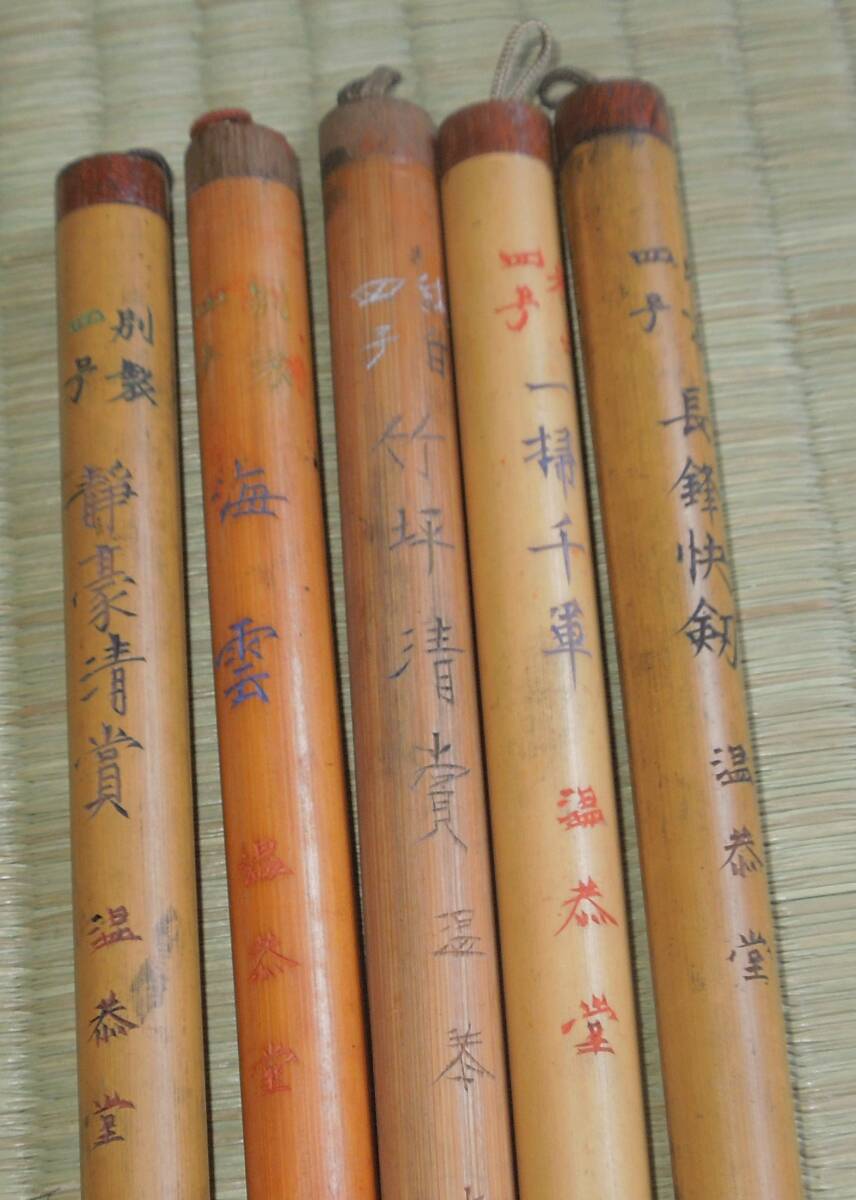 別製
四号
靜豪清賞
温恭堂
別製
四号
海雲
温恭堂
純白
四号
竹坪清賞
温恭
四号
一掃千軍
温恭堂
四号
長鋒快劔
温恭堂